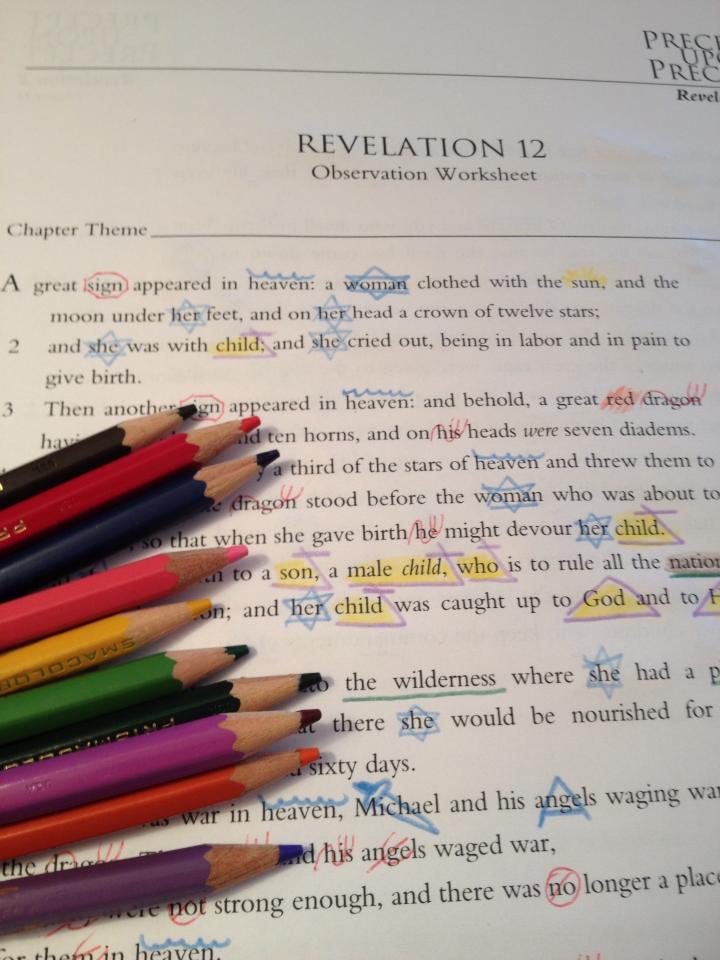 PRECE
UPO
PREC
Revel
REVELATION 12
Observation Worksheet
Chapter Theme
A great sign appeared in heaven: a woman clothed with the sun, and the
moon under her feet, and on her head a crown of twelve stars;
2 and she was with child; and she cried out, being in labor and in pain to
give birth.
3 Then another sign appeared in heaven: and behold, a great red dragon
havi nd ten horns, and on his heads were seven diadems.
a third of the stars of heaven and threw them to
dragon stood before the woman who was about to
so that when she gave birth he might devour her child.
to a son, a male child, who is to rule all the nation
on; and her child was caught up to God and to H
to the wilderness where she had a p
at there she would be nourished for
sixty days.
as war in heaven, Michael and his angels waging war
the drago nd his angels waged war,
were not strong enough, and there was no longer a place
for them in heaven.
SMACOLOR
PRISMACOLO